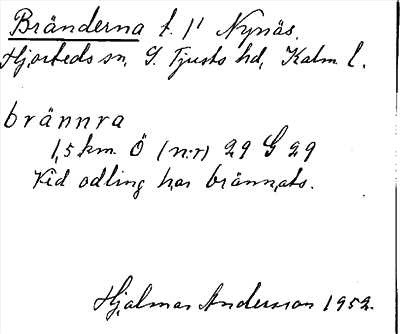 Bränderna t. 1/1 Nynäs,
Hjorteds sn, S. Tjusts hd, Kalm. l.
brännra
1,5 km. Ö (n:r) 29 G 29
Vid odling har brännats.
Hjalmar Andersson 1952.